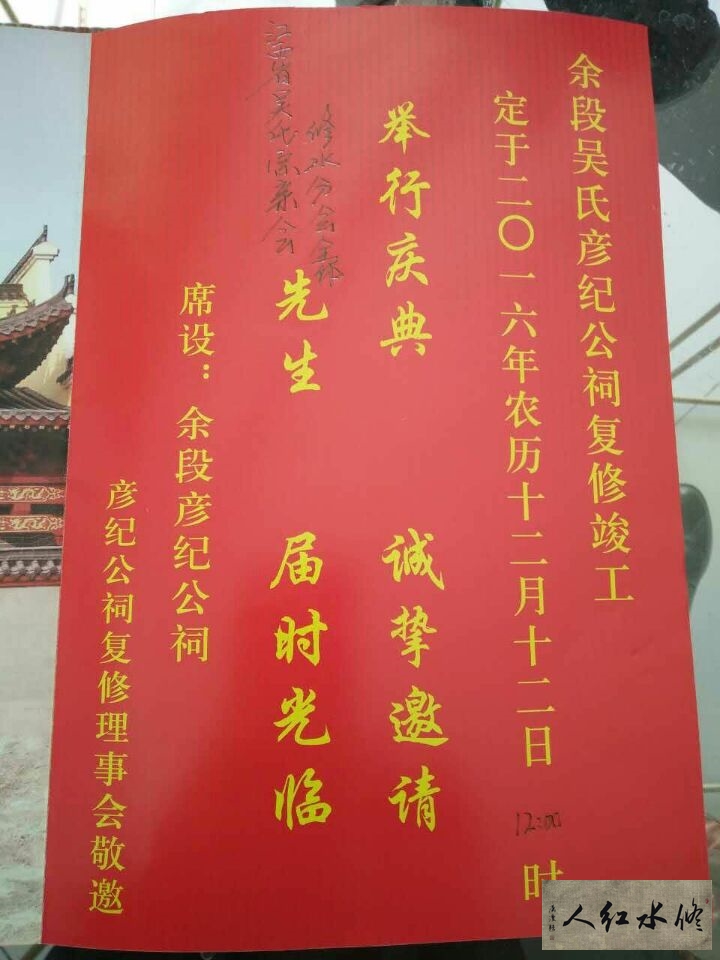 余段吴氏彦纪公祠复修竣工
定于二〇一六年农历十二月十二日 12:00 时
举行庆典 诚挚邀请
江西省吴氏宗亲会
修水分会全体
先生 届时光临
席设：余段彦纪公祠
彦纪公祠复修理事会敬邀
人红水修